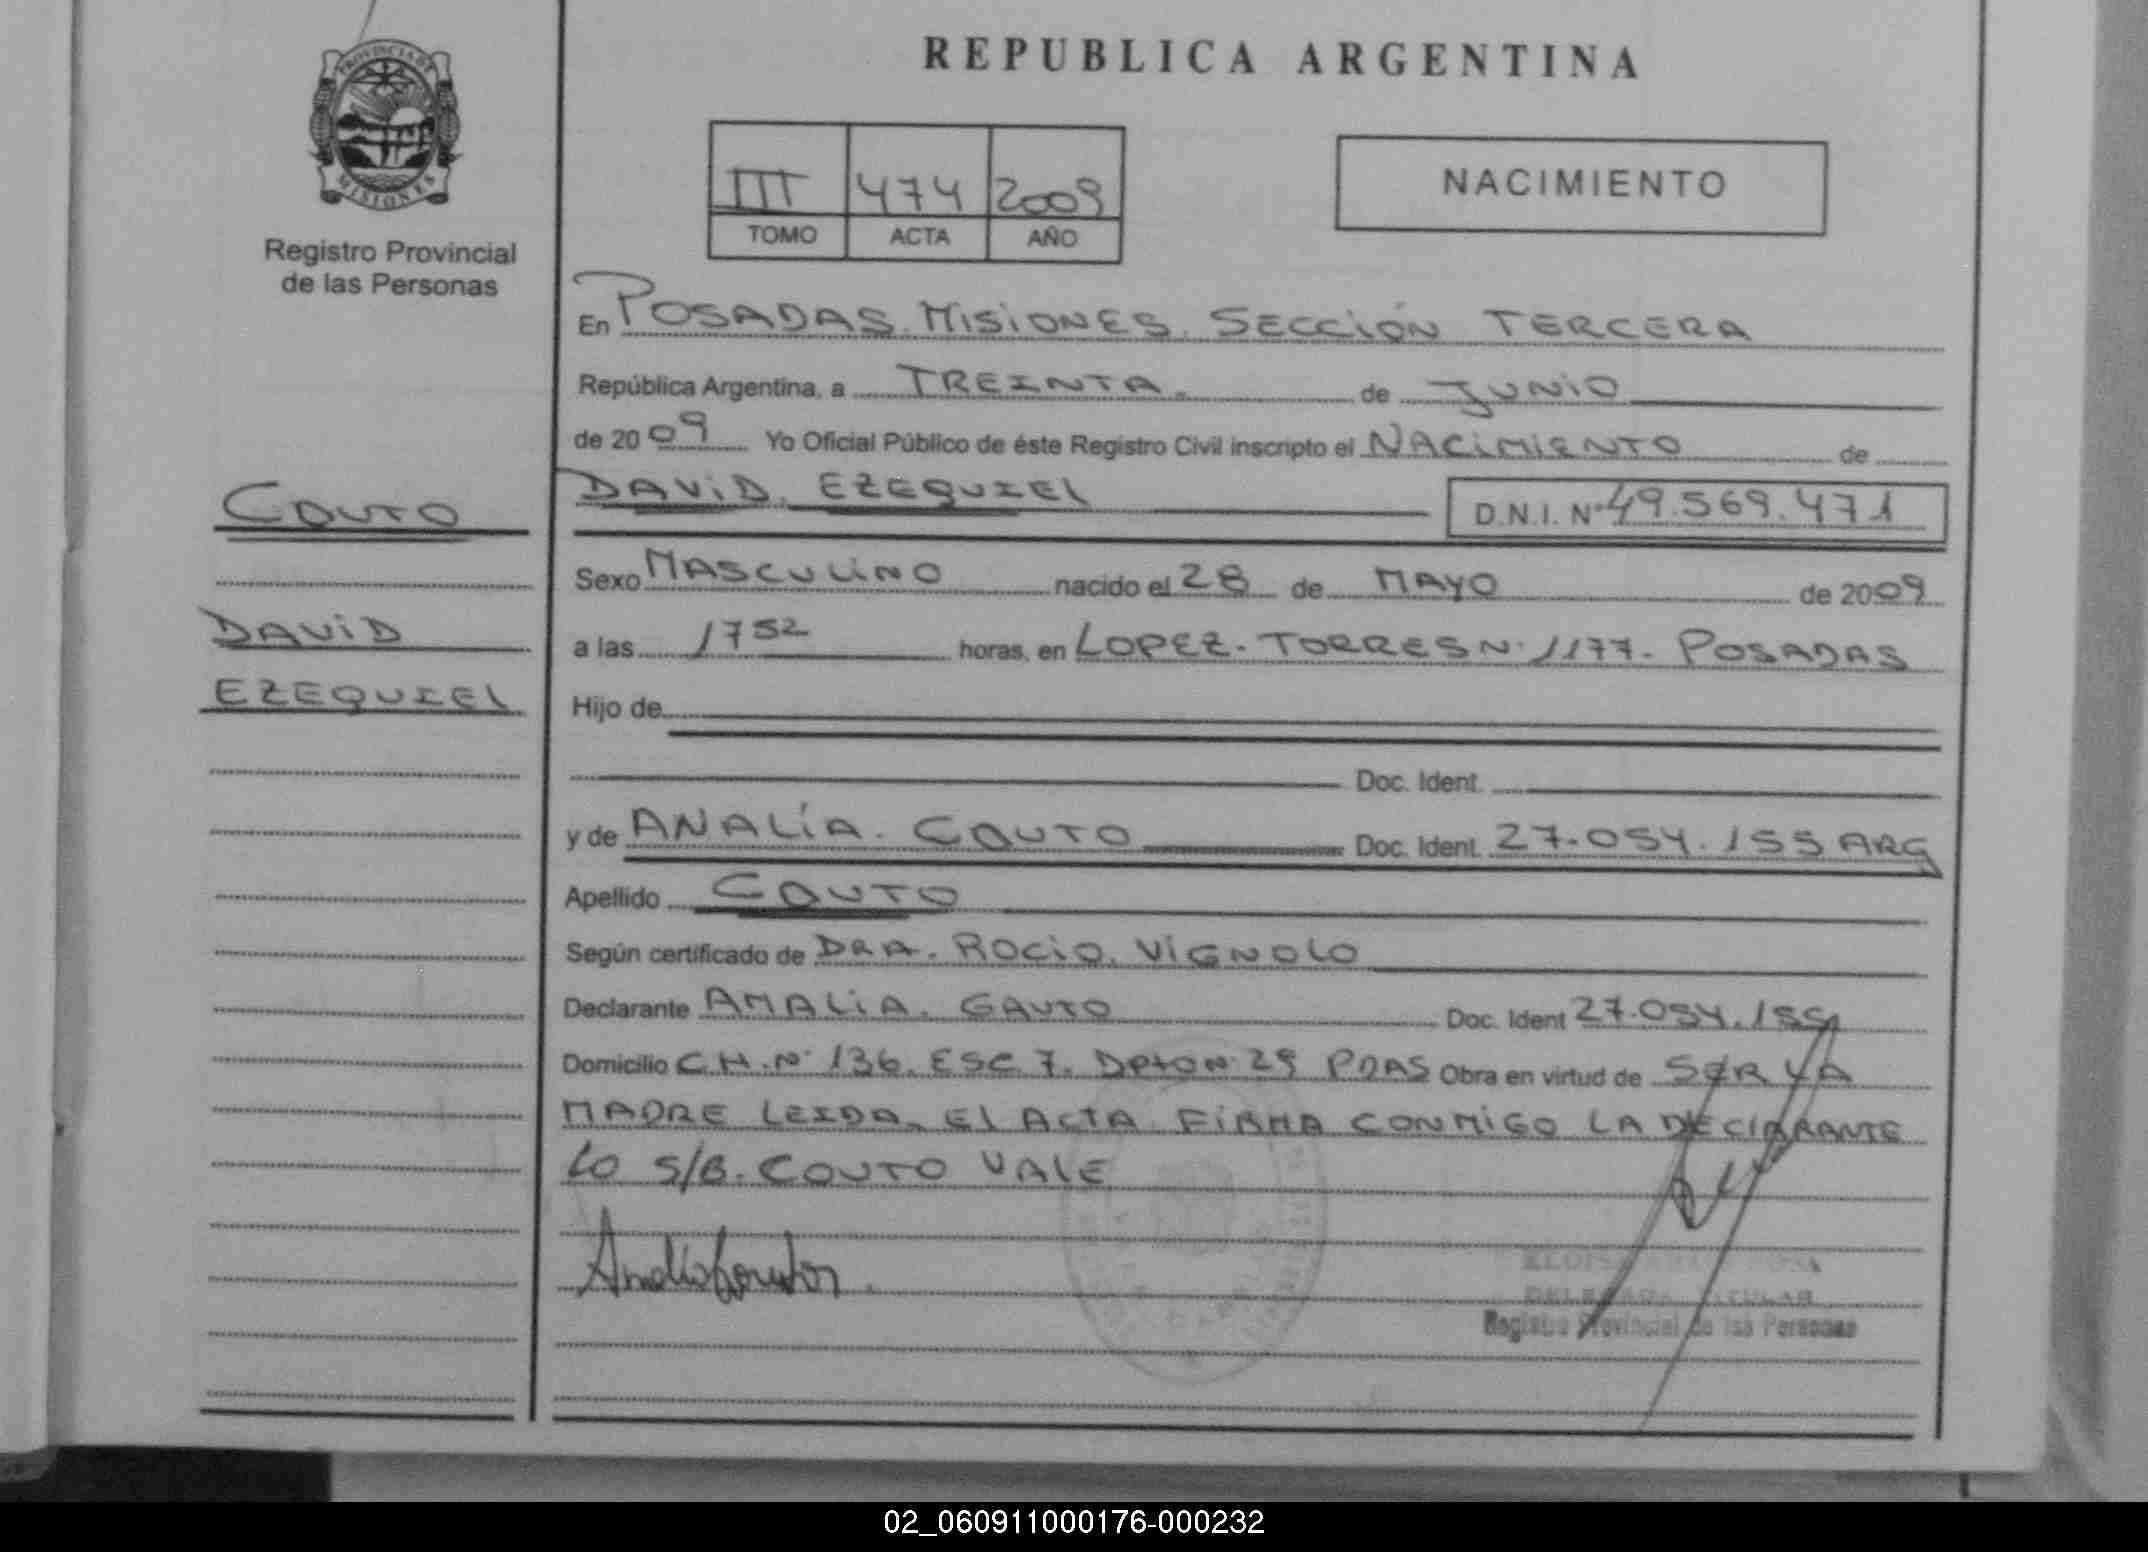 PROVINCIA DE
MISIONES
Registro Provincial
de las Personas
REPUBLICA ARGENTINA
III 474 2009
TOMO ACTA AÑO
NACIMIENTO
En POSADAS. MISIONES. SECCIÓN TERCERA
República Argentina, a TREINTA. de JUNIO
de 2009 Yo Oficial Público de éste Registro Civil inscripto el NACIMIENTO de
DAVID. EZEQUIEL D.N.I. Nº 49.569.471
COUTO
DAVID
EZEQUIEL
Sexo MASCULINO nacido el 28 de MAYO de 2009
a las 1752 horas, en LOPEZ. TORRES Nº 1177. POSADAS
Hijo de
Doc. Ident.
y de ANALÍA. COUTO Doc. Ident. 27.054.155 ARG
Apellido COUTO
Según certificado de DRA. ROCIO. VIGNOLO
Declarante AMALIA. GAUTO Doc. Ident 27.054.155
Domicilio CH. Nº 136. ESC 7. DPTO Nº 29 PDAS Obra en virtud de SER LA
MADRE LEIDA. El ACTA FIRMA CONMIGO LA DECLARANTE
LO S/B. COUTO VALE
DELEGADA TITULAR
Registro Provincial de las Personas
02_060911000176-000232